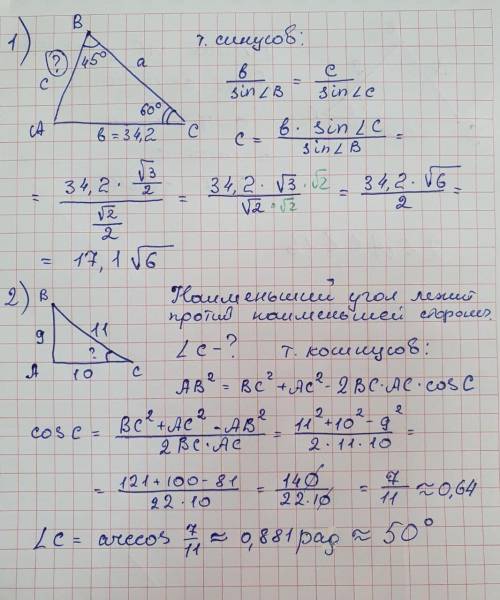 1)
B
45°
?
c
a
60°
A
b = 34,2
C
т. синусов:
b/sin∠B = c/sin∠C
c = b · sin∠C / sin∠B =
= (34,2 · √3/2) / (√2/2) = 34,2 · √3 · √2 / √2 · √2 = 34,2 · √6 / 2 =
= 17,1 √6
2)
B
9
11
?
A
10
C
Наименьший угол лежит
против наименьшей стороны
∠C - ?
т. косинусов:
AB² = BC² + AC² - 2BC · AC · cosC
cosC = BC² + AC² - AB² / 2BC · AC = 11² + 10² - 9² / 2 · 11 · 10 =
= 121 + 100 - 81 / 22 · 10 = 140 / 22 · 10 = 7/11 ≈ 0,64
∠C = arccos 7/11 ≈ 0,881 рад ≈ 50°